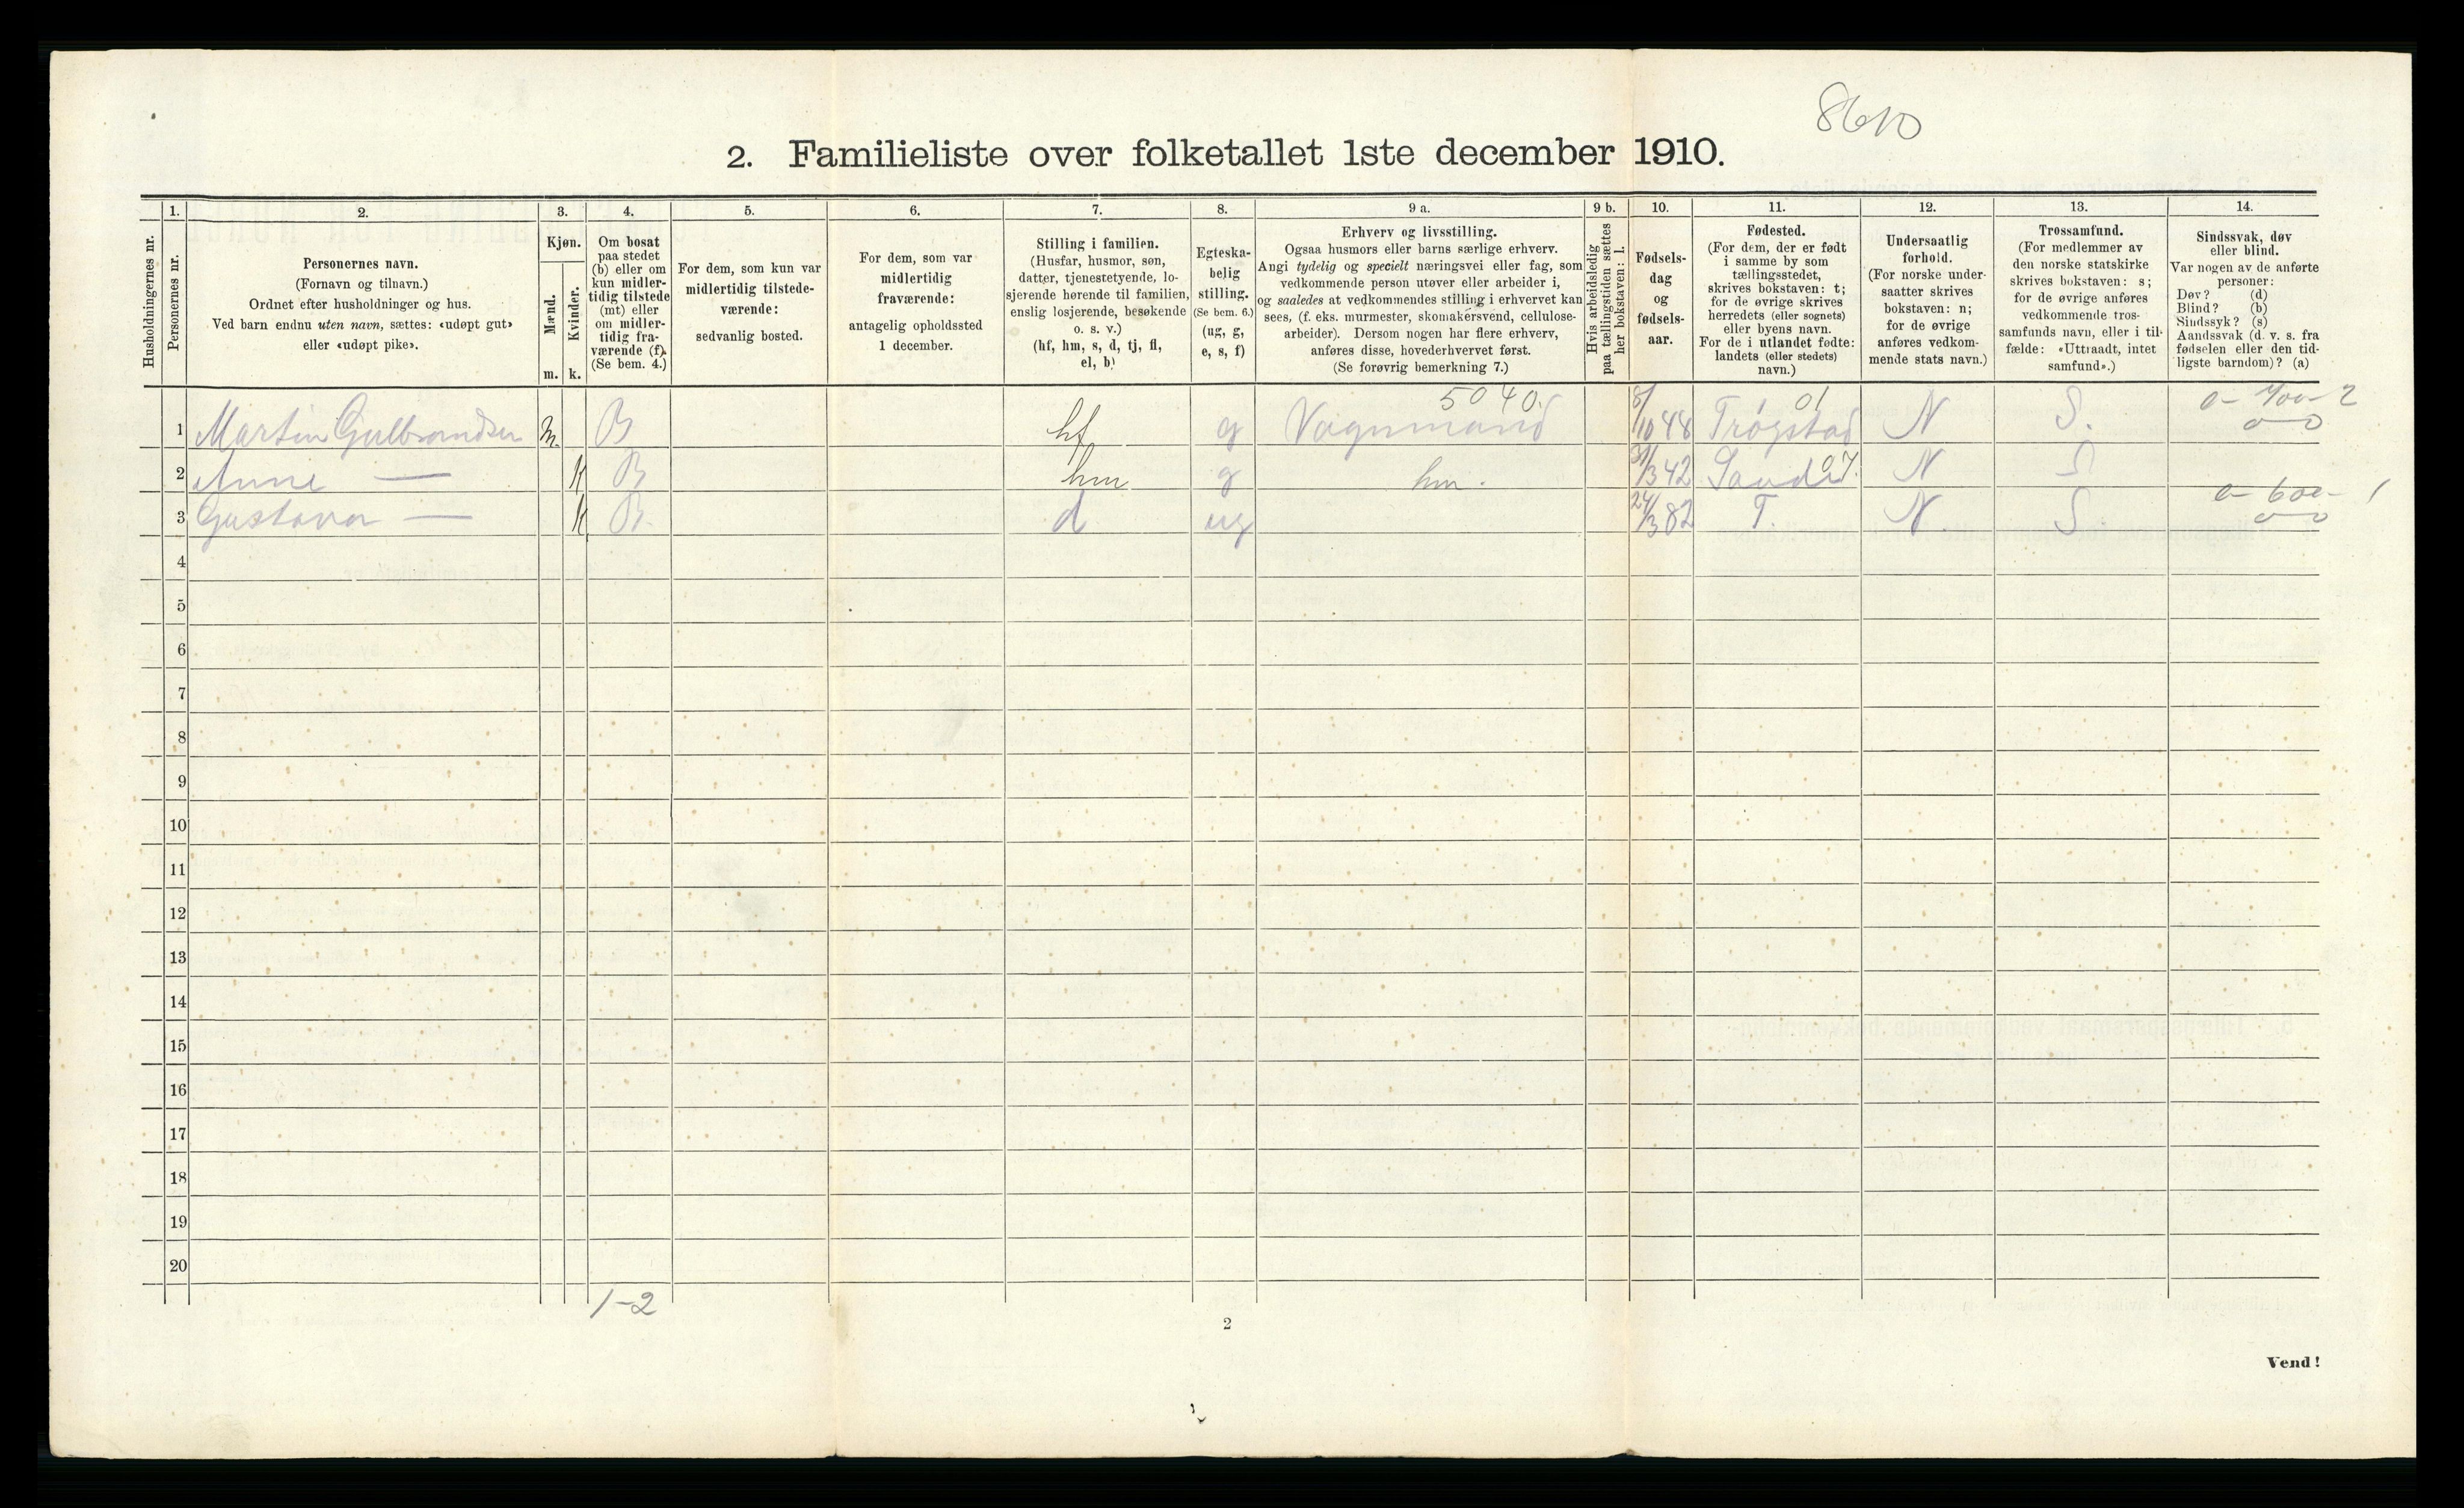 8610
2. Familieliste over folketallet 1ste december 1910.
Husholdningernes nr.
1.
Personernes nr.
2.
Personernes navn.
(Fornavn og tilnavn.)
Ordnet efter husholdninger og hus.
Ved barn endnu uten navn, sættes: «udøpt gut»
eller «udøpt pike».
3.
Kjøn.
Mænd.
Kvinder.
m. k.
4.
Om bosat
paa stedet
(b) eller om
kun midler-
tidig tilstede
(mt) eller
om midler-
tidig fra-
værende (f).
(Se bem. 4.)
5.
For dem, som kun var
midlertidig tilstede-
værende:
sedvanlig bosted.
6.
For dem, som var
midlertidig
fraværende:
antagelig opholdssted
1 december.
7.
Stilling i familien.
(Husfar, husmor, søn,
datter, tjenestetyende, lo-
sjerende hørende til familien,
enslig losjerende, besøkende
o. s. v.)
(hf, hm, s, d, tj, fl,
el, b)
8.
Egteska-
belig
stilling.
(Se bem. 6.)
(ug, g,
e, s, f)
9 a.
Erhverv og livsstilling.
Ogsaa husmors eller barns særlige erhverv.
Angi tydelig og specielt næringsvei eller fag, som
vedkommende person utøver eller arbeider i,
og saaledes at vedkommendes stilling i erhvervet kan
sees, (f. eks. murmester, skomakersvend, cellulose-
arbeider). Dersom nogen har flere erhverv,
anføres disse, hovederhvervet først.
(Se forøvrig bemerkning 7.)
9 b.
Hvis arbeidsledig
paa tællingstiden sættes
her bokstaven: l.
10.
Fødsels-
dag
og
fødsels-
aar.
11.
Fødested.
(For dem, der er født
i samme by som
tællingsstedet,
skrives bokstaven: t;
for de øvrige skrives
herredets (eller sognets)
eller byens navn.
For de i utlandet fødte:
landets (eller stedets)
navn.)
12.
Undersaatlig
forhold.
(For norske under-
saatter skrives
bokstaven: n;
for de øvrige
anføres vedkom-
mende stats navn.)
13.
Trossamfund.
(For medlemmer av
den norske statskirke
skrives bokstaven: s;
for de øvrige anføres
vedkommende tros-
samfunds navn, eller i til-
fælde: «Uttraadt, intet
samfund».)
14.
Sindssvak, døv
eller blind.
Var nogen av de anførte
personer:
Døv? (d)
Blind? (b)
Sindssyk? (s)
Aandssvak (d. v. s. fra
fødselen eller den tid-
ligste barndom)? (a)
5040. 01 0-400-2
1 Martin Gulbrandsen m. B hf g Vognmand 8/10 48 Trøgstad N S. 0-0
2 Anne — k B hm g hm. 31/3 42 Sande 07. N S
0-600-1
3 Gustava — k B. d ug 24/3 82 T. N. S. 0-0
4
5
6
7
8
9
10
11
12
13
14
15
16
17
18
19
20
1-2
2
Vend!